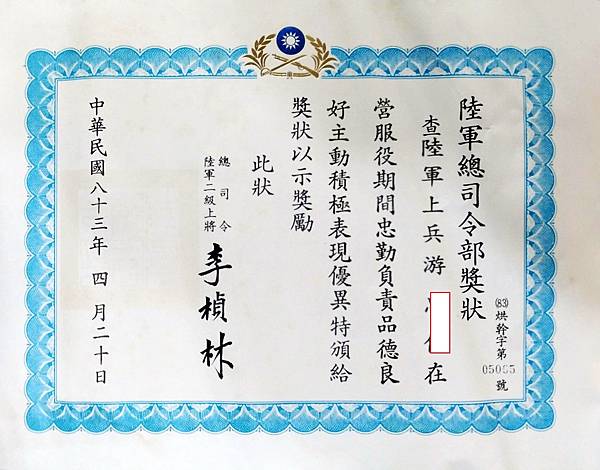 陸軍總司令部獎狀
(83)烘幹字第05065號
查陸軍上兵游 在
營服役期間忠勤負責品德良
好主動積極表現優異特頒給
獎狀以示獎勵
此狀
總司令
陸軍二級上將
李楨林
中華民國八十三年四月二十日